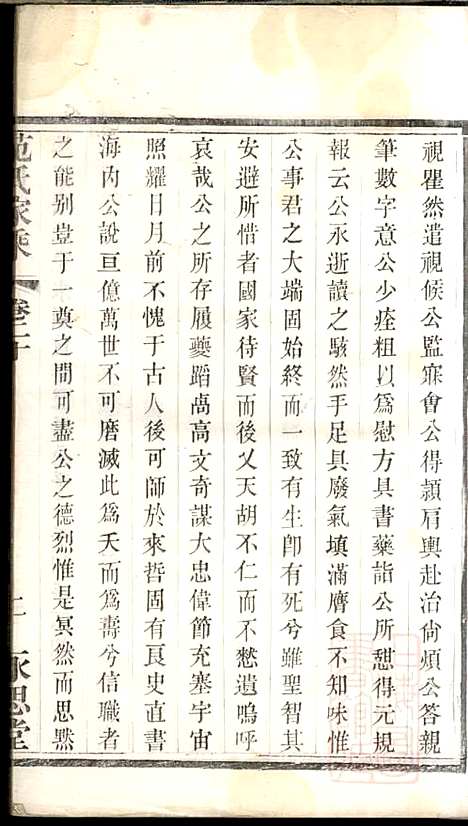 視瞿然遣視候公監寐會公得潁肩輿赴治尙煩公答親
筆數字意公少痊粗以爲慰方具書藥詣公所憇得元規
報云公永逝讀之駭然手足具廢氣填滿膺食不知味惟
公事君之大端固始終而一致有生卽有死兮雖聖智其
安避所惜者國家待賢而後乂天胡不仁而不憖遺嗚呼
哀哉公之所存履夔蹈卨高文奇謀大忠偉節充塞宇宙
照耀日月前不愧于古人後可師於來哲固有良史直書
海内公說亘億萬世不可磨滅此爲夭而爲壽兮信職者
之能别豈于一奠之間可盡公之德烈惟是冥然而思黙
范氏家乘 卷二十 永思堂